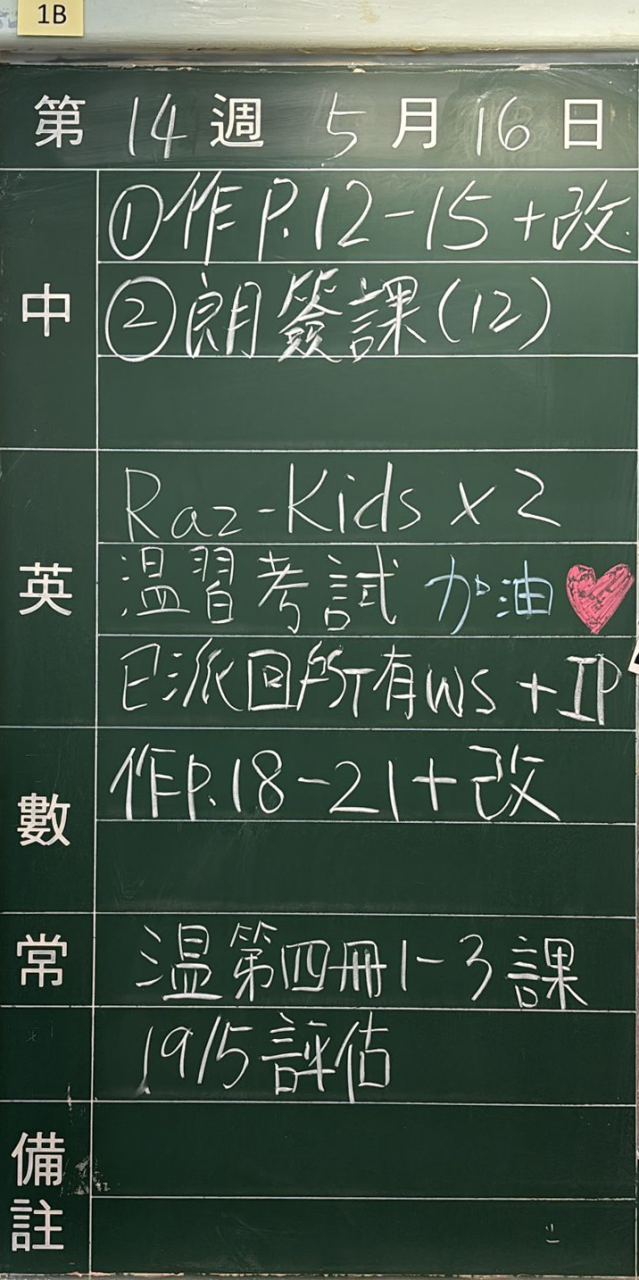 1B
第 14 週 5 月 16 日
中
①作P.12-15+改
②朗簽課(12)
英
Raz-Kids x 2
温習考試 加油
已派回所有WS + IP
數
作P.18-21+改
常
温第四冊1-3課
19/5評估
備註